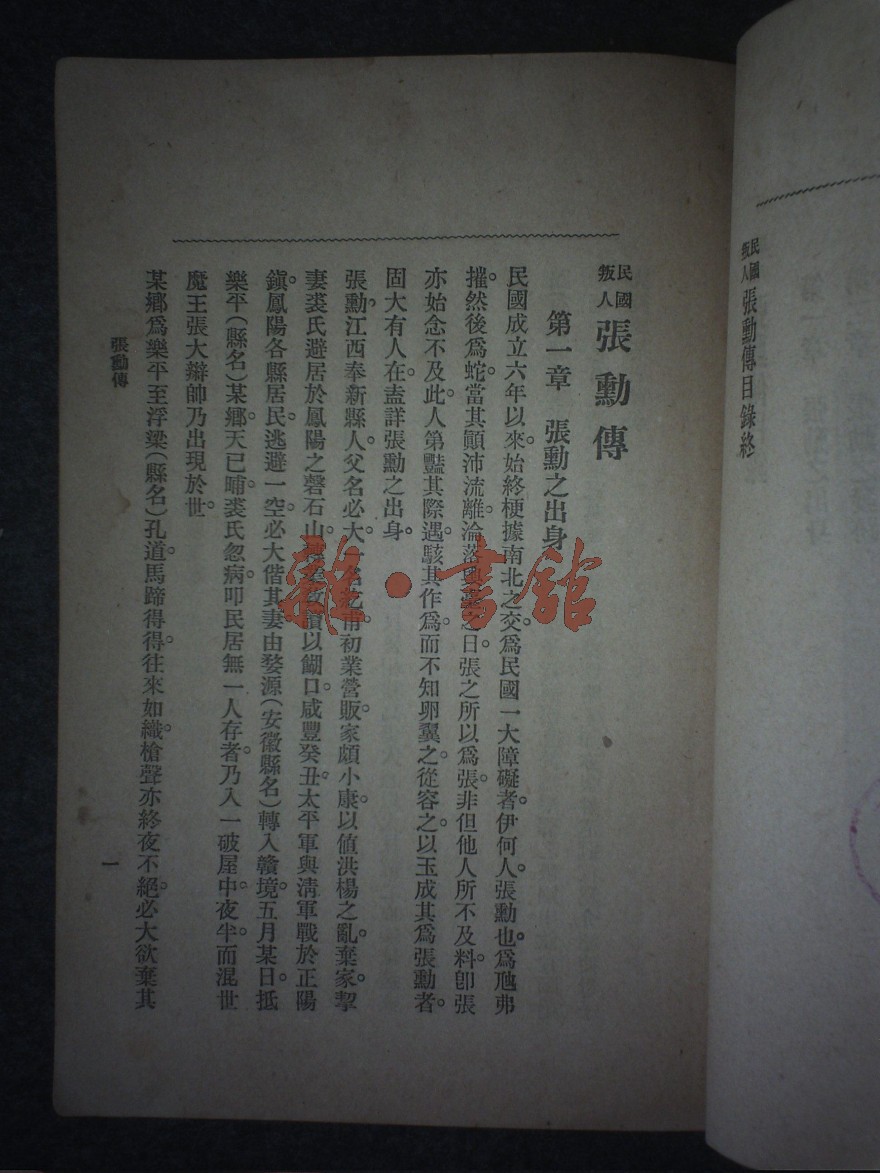 民國叛人 張勳傳目錄終
民國叛人 張勳傳
第一章 張勳之出身
民國成立六年以來。始終梗據南北之交。爲民國一大障礙者。伊何人。張勳也。爲虺弗
摧。然後爲蛇。當其顚沛流離。淪落
之日。張之所以爲張。非但他人所不及料。卽張
亦始念不及此。人第豔其際遇。駭其作爲。而不知卵翼之。從容之。以玉成其爲張勳者。
固大有人在。盍詳張勳之出身。
張勳。江西奉新縣人。父名必大。一名
甫。初業營販。家頗小康。以值洪楊之亂。棄家挈
妻裘氏避居於鳳陽之磬石山。
以餬口。咸豐癸丑。太平軍與淸軍戰於正陽
鎭。鳳陽各縣居民。逃避一空。必大偕其妻。由婺源（安徽縣名）轉入贛境。五月某日。抵
樂平（縣名）某鄉。天已晡。裘氏忽病。叩民居無一人存者。乃入一破屋中。夜半。而混世
魔王張大辮帥乃出現於世。
某鄉爲樂平至浮梁（縣名）孔道。馬蹄得得。往來如織。槍聲亦終夜不絕。必大欲棄其
張勳傳
一
雜·書館